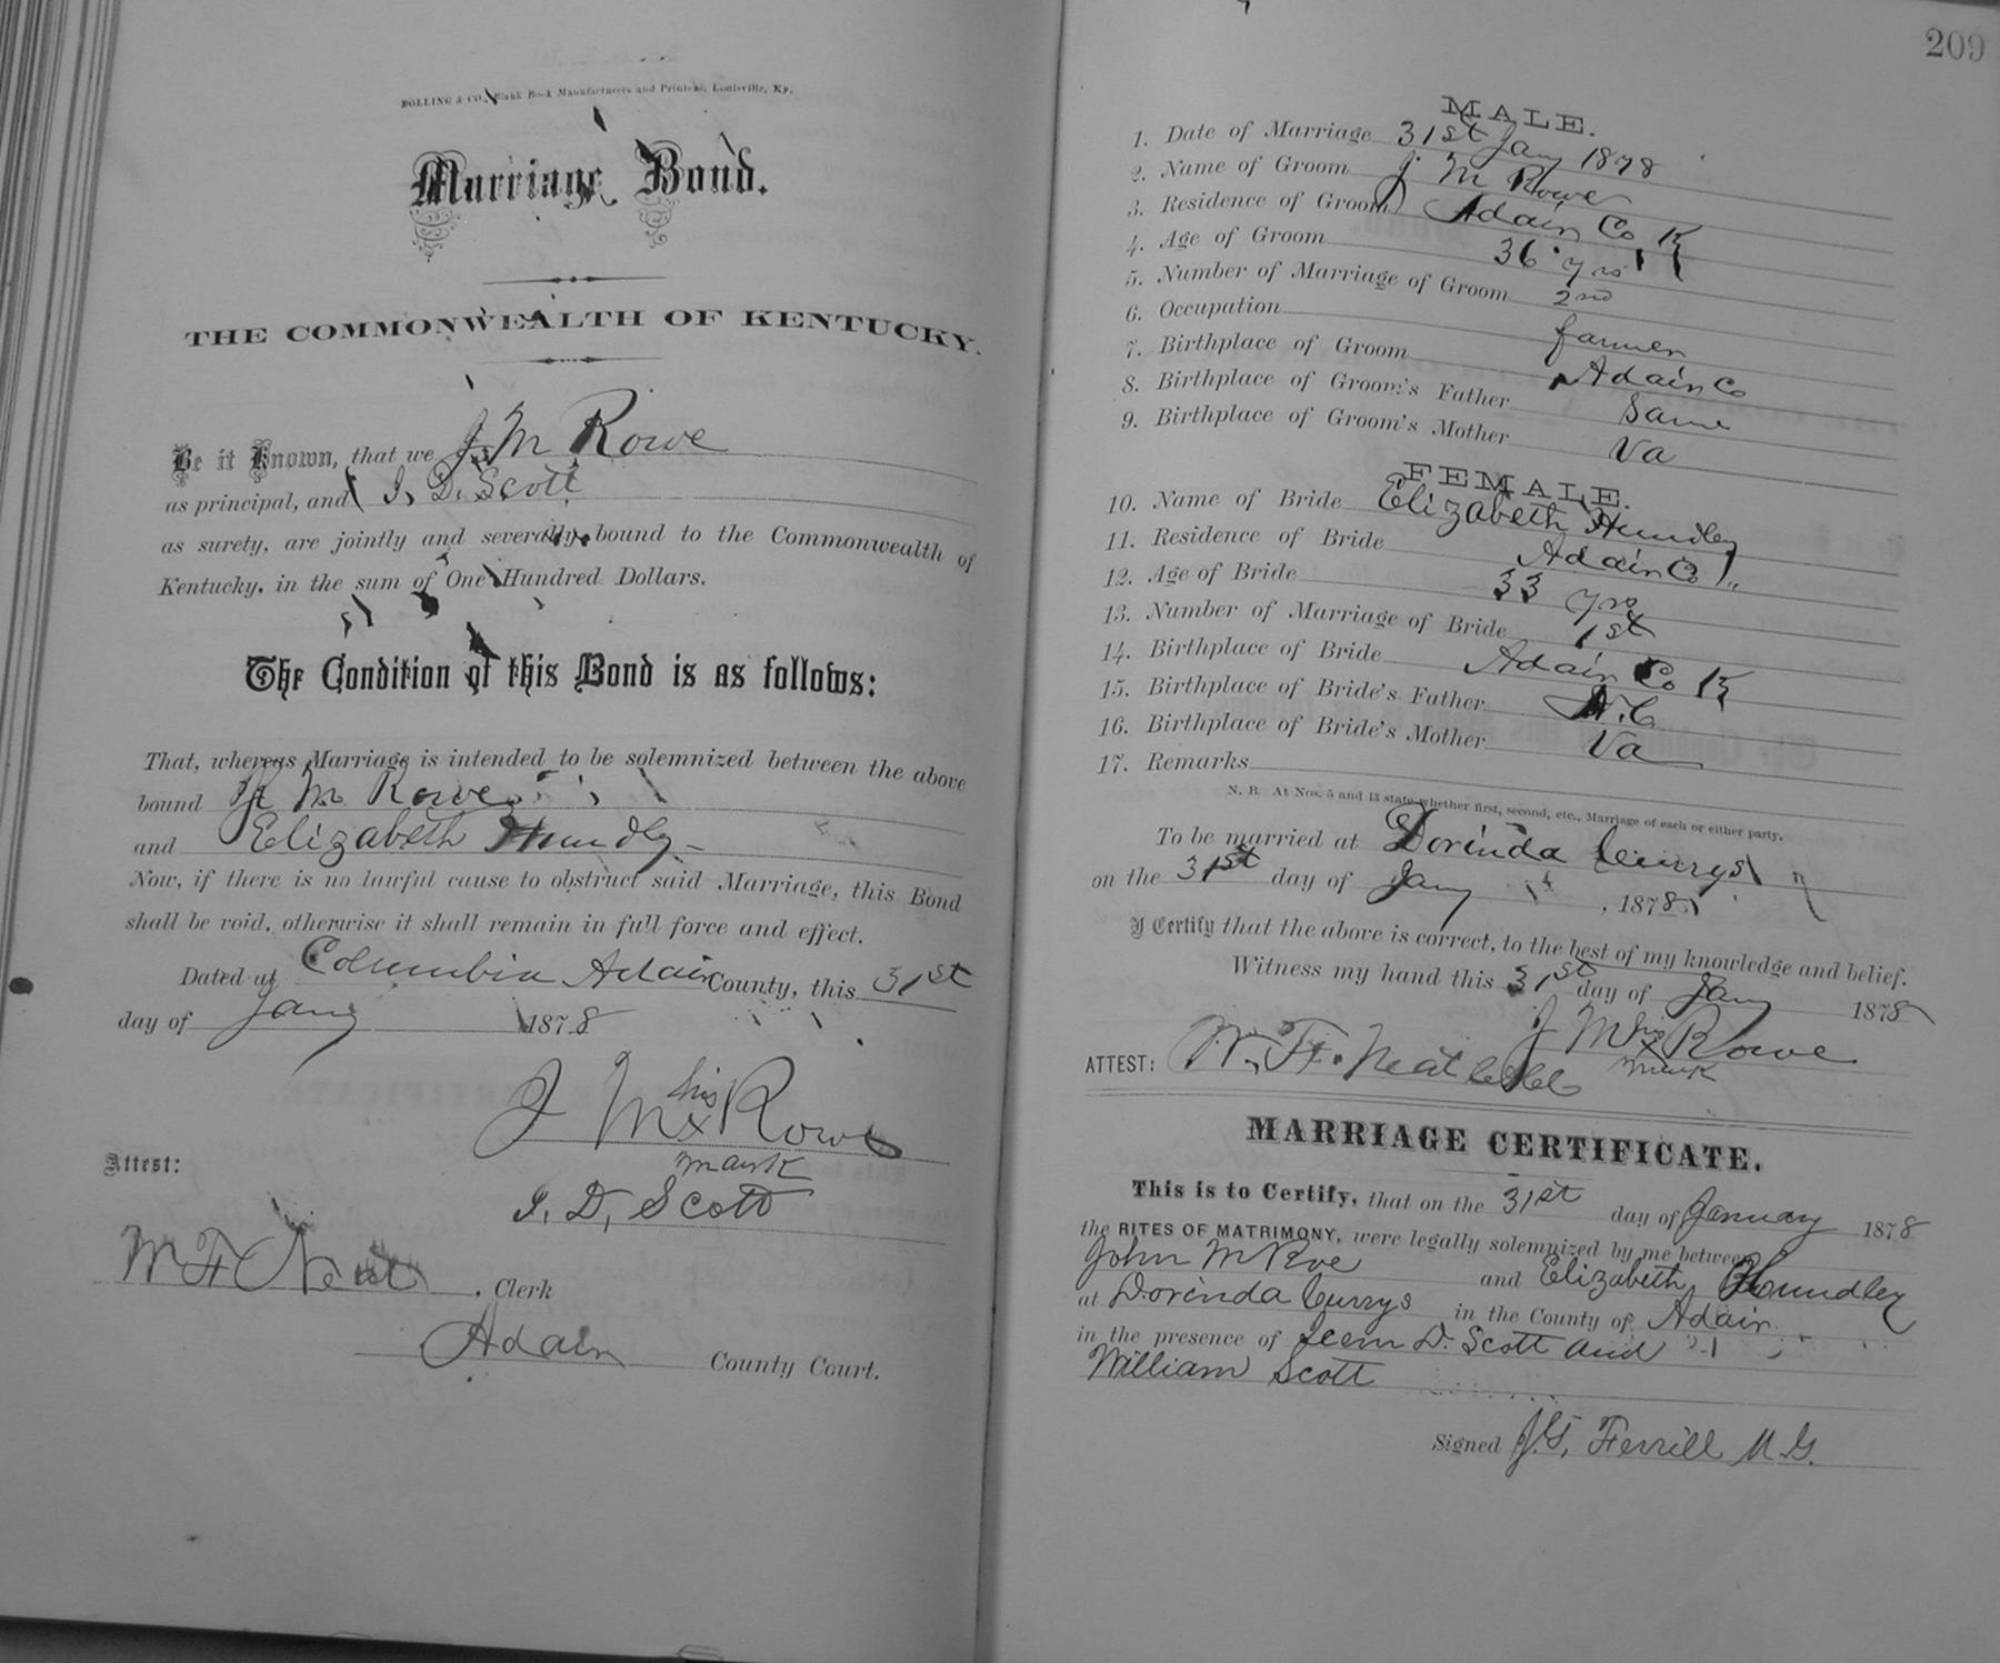 BOLLING & CO., Blank Book Manufacturers and Printers, Louisville, Ky.
Marriage Bond.
THE COMMONWEALTH OF KENTUCKY.
Be it Known, that we J M Rowe
as principal, and J. D. Scott
as surety, are jointly and severally bound to the Commonwealth of
Kentucky, in the sum of One Hundred Dollars.
The Condition of this Bond is as follows:
That, whereas Marriage is intended to be solemnized between the above
bound J M Rowe
and Elizabeth Hundley
Now, if there is no lawful cause to obstruct said Marriage, this Bond
shall be void, otherwise it shall remain in full force and effect.
Dated at Columbia Adair County, this 31st
day of Jany 1878
J M his x mark Rowe
J. D. Scott
Attest:
W F Neat, Clerk
Adair County Court.
209
MALE.
1. Date of Marriage 31st Jany 1878
2. Name of Groom J M Rowe
3. Residence of Groom Adair Co K
4. Age of Groom 36 yrs
5. Number of Marriage of Groom 2nd
6. Occupation farmer
7. Birthplace of Groom Adair Co
8. Birthplace of Groom's Father Same
9. Birthplace of Groom's Mother Va
FEMALE.
10. Name of Bride Elizabeth Hundley
11. Residence of Bride Adair Co "
12. Age of Bride 33 yrs
13. Number of Marriage of Bride 1st
14. Birthplace of Bride Adair Co K
15. Birthplace of Bride's Father N.C
16. Birthplace of Bride's Mother Va
17. Remarks
N. B. At Nos. 5 and 13 state whether first, second, etc., Marriage of each or either party.
To be married at Dorinda Currys
on the 31st day of Jany, 1878
I Certify that the above is correct, to the best of my knowledge and belief.
Witness my hand this 31st day of Jany 1878
J M his x mark Rowe
ATTEST: W. F. Neat
MARRIAGE CERTIFICATE.
This is to Certify, that on the 31st day of January 1878
the RITES OF MATRIMONY, were legally solemnized by me between
John M Roe and Elizabeth Houndley
at Dorinda Currys in the County of Adair
in the presence of D. Scott and
William Scott
Signed J.G. Ferrill M G.